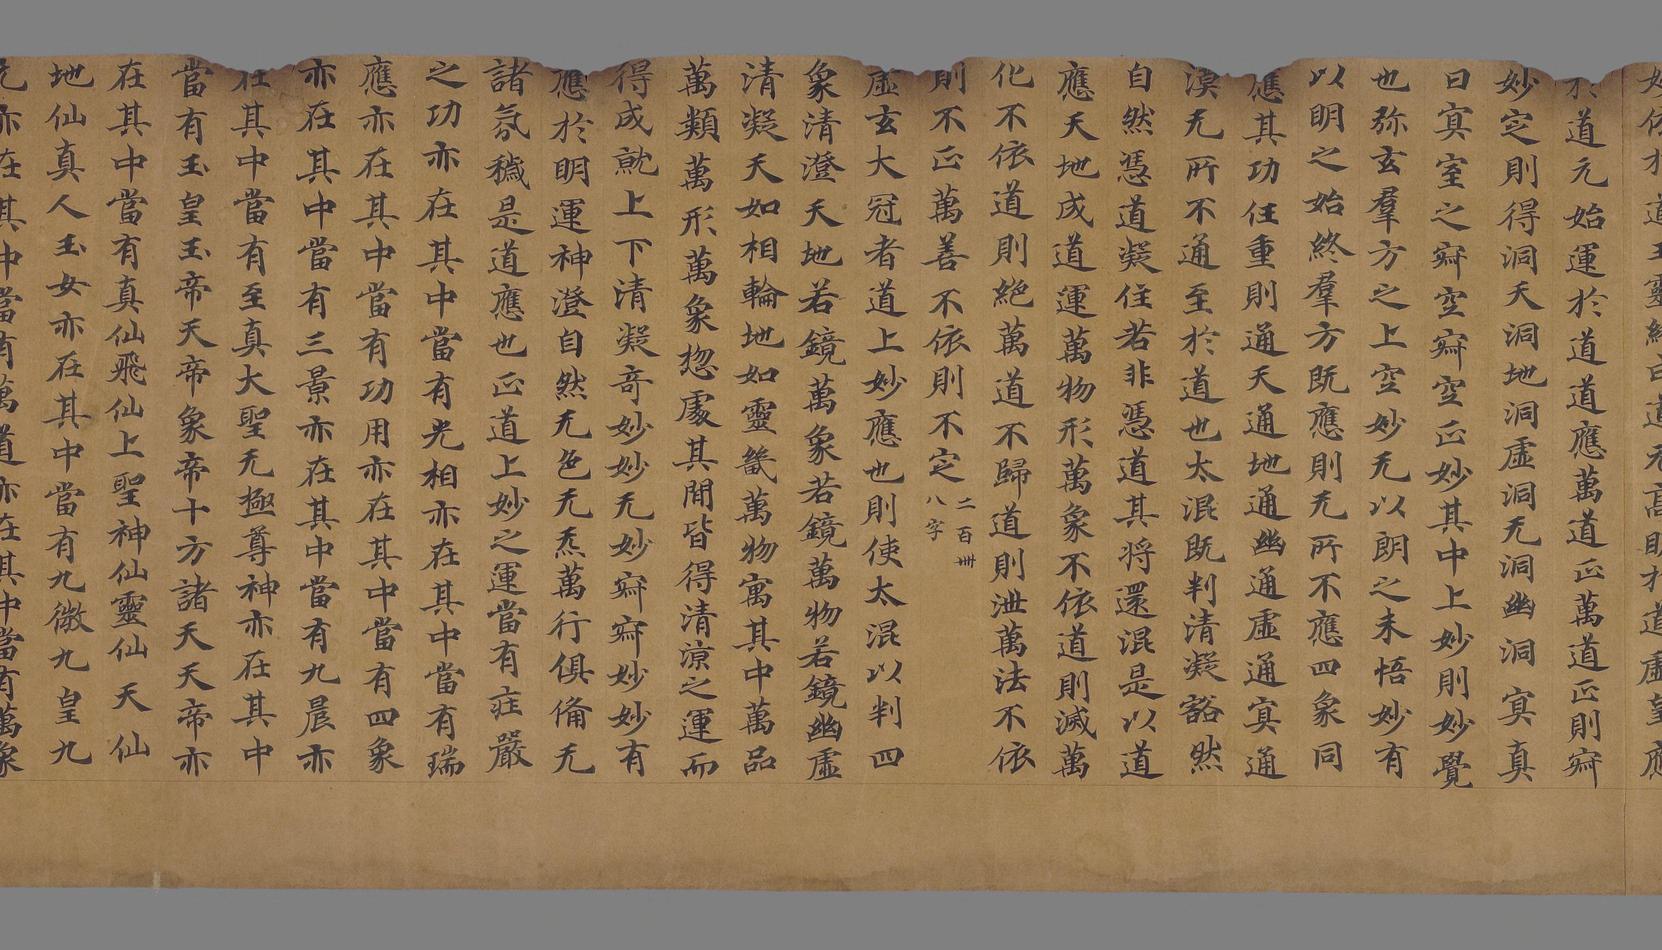 妙依於道至靈經云道无高明於道虛皇應
於道元始運於道道應萬道正萬道正則寂
妙定則得洞天洞地洞虛洞无洞幽洞寘真
曰寘室之寂空寂空正妙其中上妙則妙覺
也弥玄羣方之上空妙无以朗之未悟妙有
以明之始終羣方既應則无所不應四象同
應其功任重則通天通地通幽通虛通寘通
漠无所不通至於道也太混既判清凝豁然
自然憑道凝住若非憑道其将還混是以道
應天地成道運萬物形萬象不依道則滅萬
化不依道則絕萬道不歸道則泄萬法不依
則不正萬善不依則不定 二百卌八字
虛玄大冠者道上妙應也則使太混以判四
象清澄天地若鏡萬象若鏡萬物若鏡幽虛
清凝天如相輪地如靈畿萬物寓其中萬品
萬類萬形萬象惣處其間皆得清凉之運而
得成就上下清凝奇妙妙无妙寂寂妙妙有
應於明運神澄自然无色无炁萬行俱俻无
諸氛穢是道應也正道上妙之運當有莊嚴
之功亦在其中當有光相亦在其中當有瑞
應亦在其中當有功用亦在其中當有四象
亦在其中當有三景亦在其中當有九晨亦
在其中當有至真大聖无極尊神亦在其中
當有玉皇玉帝天帝象帝十方諸天天帝亦
在其中當有真仙飛仙上聖神仙靈仙天仙
地仙真人玉女亦在其中當有九微九皇九
元亦在其中當有萬道亦在其中當有萬象